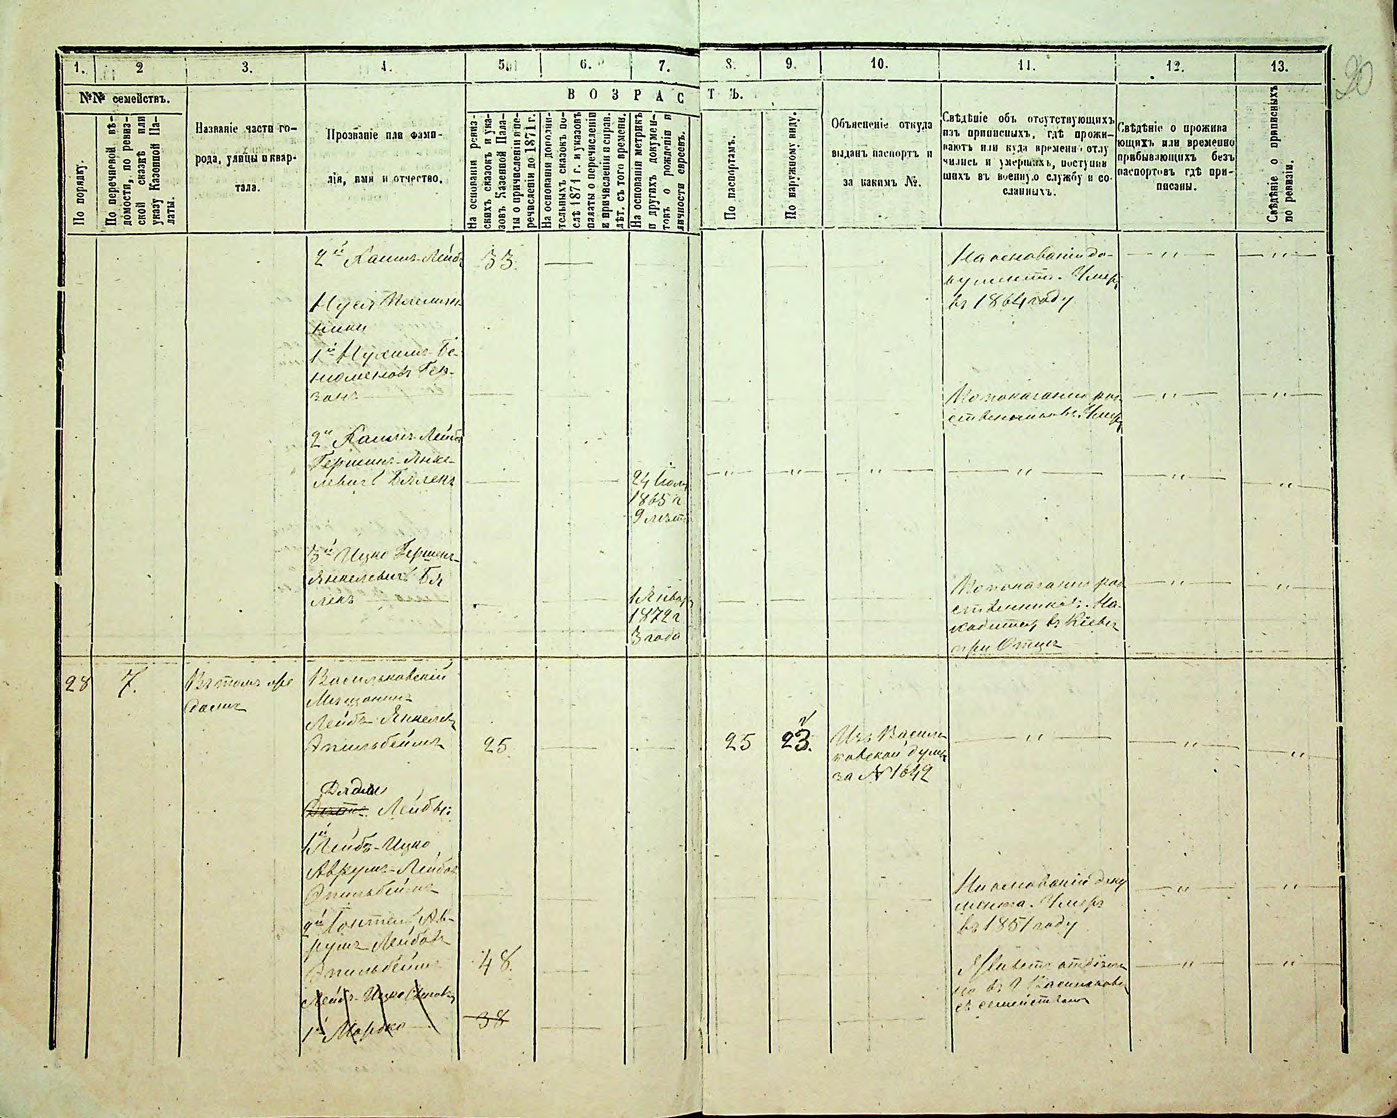 20
1. 2 3. 4. 5. 6. 7. 8. 9. 10. 11. 12. 13.
№№ семействъ.
По порядку.
По перечневой вѣ-
домости, по ревиз-
ской сказкѣ или
указу Казенной Па-
латы.
Названіе части го-
рода, улицы и квар-
тала.
Прозваніе или фами-
лія, имя и отчество.
ВОЗРАСТЪ.
На основаніи ревиз-
скихъ сказокъ и ука-
зовъ Казенной Пала-
ты о причисленіи и пе-
речисленіи до 1871 г.
На основаніи дополни-
тельныхъ сказокъ по-
слѣ 1871 г. и указовъ
палаты о перечисленіи
и причисленіи и справ.
лѣт. съ того времени.
На основаніи метрикъ
и другихъ докумен-
товъ о рожденіи и
личности евреевъ.
По паспортамъ.
По наружному виду.
Объясненіе откуда
выданъ паспортъ и
за какимъ №.
Свѣдѣніе объ отсутствующихъ
изъ приписныхъ, гдѣ прожи-
ваютъ или куда временно отлу-
чились и умершихъ, поступив
шихъ въ военную службу и со-
сланныхъ.
Свѣдѣніе о прожива
ющихъ или временно
прибывающихъ безъ
паспортовъ гдѣ при-
писаны.
Свѣдѣніе о приписныхъ
по ревизіи.
2й Хаимъ-Лейбъ 33 — На основаніи до-
кумента. Умеръ
въ 1864 году
— „ — — „ —
племян-
ники
1й Нухимъ Бе-
— По показанію род
ственниковъ. Умеръ
— „ — — „ —
2й Хаимъ-Лейбъ
Гершки-Янке-
левичъ
24
1865 г
9 лѣтъ
— „ — — „ — — „ — — „ — — „ — „
3й Ицко Гершк-
Янкелевичъ
1 Январ
1872 г
3 года
По показанію род
ственниковъ. На-
ходится въ Кіевѣ
при Отцѣ
— „ — — „ —
28 7. Въ томъ же
домѣ
Васильковскій
Мѣщанинъ
Лейбъ Янкелев
25 — — 25 23. Изъ Василь-
ковской думы
за № 1642
— „ — „ — „
Дяди Лейбы:
1й Лейбъ-Ицко
Аврумъ-Лейбов
На основаніи доку
мента. Умеръ
въ 1851 году
— „ — — „ —
2й Ав-
румъ Лейбовъ
48. — Живетъ отдѣль
но въ г Васильковѣ
съ семействомъ
— „ — — „ —
Лейбъ-Ицко
1й Мордко 38